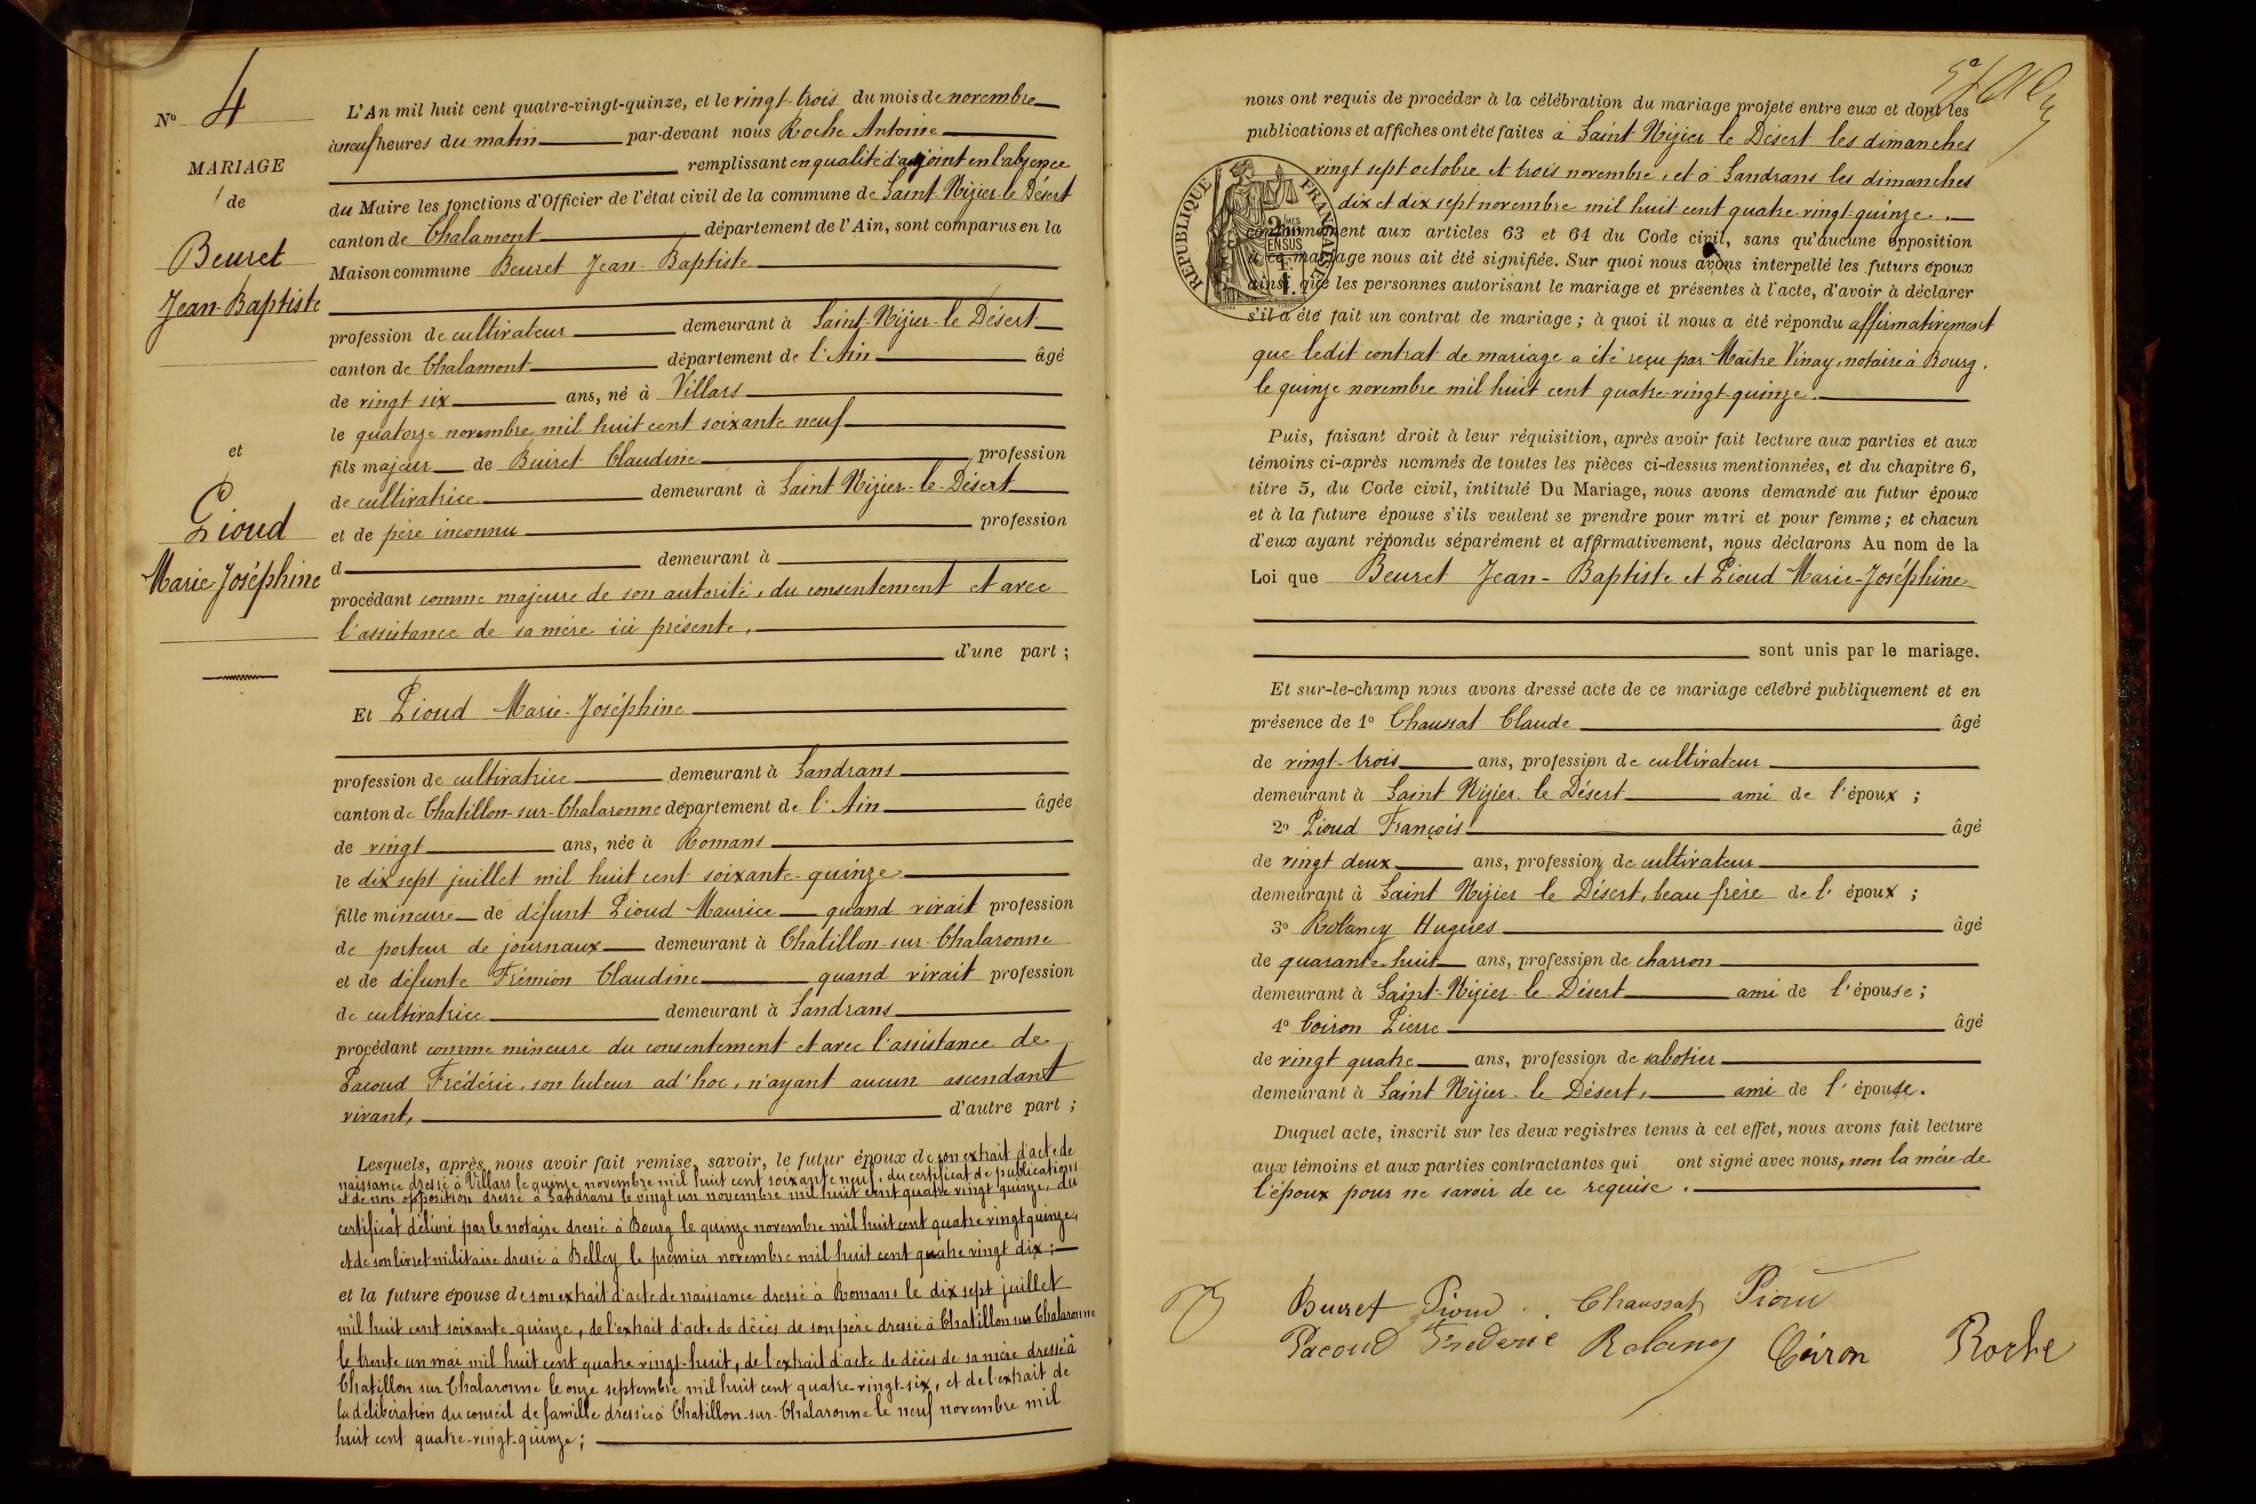 N° 4
MARIAGE
de
Beuret
Jean-Baptiste
et
Pioud
Marie Joséphine
L'An mil huit cent quatre-vingt-quinze, et le vingt-trois du mois de novembre
à neuf heures du matin par-devant nous Roche Antoine
remplissant en qualité d'adjoint en l'absence
du Maire les fonctions d'Officier de l'état civil de la commune de Saint Nizier le Désert
canton de Chalamont département de l'Ain, sont comparus en la
Maison commune Beuret Jean-Baptiste
profession de cultivateur demeurant à Saint-Nizier-le Désert
canton de Chalamont département de l'Ain âgé
de vingt six ans, né à Villars
le quatorze novembre mil huit cent soixante neuf
fils majeur de Beuret Claudine profession
de cultivatrice demeurant à Saint Nizier-le-Désert
et de père inconnu profession
d demeurant à
procédant comme majeure de son autorité, du consentement et avec
l'assistance de sa mère ici présente,
d'une part ;
Et Pioud Marie-Joséphine
profession de cultivatrice demeurant à Sandrans
canton de Chatillon-sur-Chalaronne département de l'Ain âgée
de vingt ans, née à Romans
le dix sept juillet mil huit cent soixante-quinze
fille mineure de défunt Pioud Maurice quand vivait profession
de porteur de journaux demeurant à Chatillon-sur-Chalaronne
et de défunte Frémion Claudine quand vivait profession
de cultivatrice demeurant à Sandrans
procédant comme mineure du consentement et avec l'assistance de
Pacoud Frédéric, son tuteur ad'hoc, n'ayant aucun ascendant
vivant, d'autre part ;
Lesquels, après nous avoir fait remise, savoir, le futur époux de son extrait d'acte de
naissance dressé à Villars le quinze novembre mil huit cent soixante neuf, du certificat de publications
et de non opposition dressé à Sandrans le vingt un novembre mil huit cent quatre vingt quinze, du
certificat délivré par le notaire dressé à Bourg le quinze novembre mil huit cent quatre vingt quinze,
et de son livret militaire dressé à Belley le premier novembre mil huit cent quatre vingt dix ;
et la future épouse de son extrait d'acte de naissance dressé à Romans le dix sept juillet
mil huit cent soixante-quinze, de l'extrait d'acte de décès de son père dressé à Chatillon sur Chalaronne
le trente un mai mil huit cent quatre vingt-huit, de l'extrait d'acte de décès de sa mère dressé à
Chatillon sur Chalaronne le onze septembre mil huit cent quatre-vingt-six, et de l'extrait de
la délibération du conseil de famille dressée à Chatillon-sur-Chalaronne le neuf novembre mil
huit cent quatre-vingt-quinze ;
nous ont requis de procéder à la célébration du mariage projeté entre eux et dont les
publications et affiches ont été faites à Saint Nizier le Désert les dimanches
vingt sept octobre et trois novembre, et à Sandrans les dimanches
dix et dix sept novembre mil huit cent quatre-vingt-quinze.
RÉPUBLIQUE FRANÇAISE
conformément aux articles 63 et 64 du Code civil, sans qu'aucune opposition
à ce mariage nous ait été signifiée. Sur quoi nous avons interpellé les futurs époux
ainsi que les personnes autorisant le mariage et présentes à l'acte, d'avoir à déclarer
s'il a été fait un contrat de mariage ; à quoi il nous a été répondu affirmativement
que ledit contrat de mariage a été reçu par Maître Vinay, notaire à Bourg,
le quinze novembre mil huit cent quatre-vingt-quinze.
Puis, faisant droit à leur réquisition, après avoir fait lecture aux parties et aux
témoins ci-après nommés de toutes les pièces ci-dessus mentionnées, et du chapitre 6,
titre 5, du Code civil, intitulé Du Mariage, nous avons demandé au futur époux
et à la future épouse s'ils veulent se prendre pour mari et pour femme ; et chacun
d'eux ayant répondu séparément et affirmativement, nous déclarons Au nom de la
Loi que Beuret Jean-Baptiste et Pioud Marie-Joséphine
sont unis par le mariage.
Et sur-le-champ nous avons dressé acte de ce mariage célébré publiquement et en
présence de 1° Chaussat Claude âgé
de vingt-trois ans, profession de cultivateur
demeurant à Saint Nizier le Désert ami de l'époux ;
2° Pioud François âgé
de vingt deux ans, profession de cultivateur
demeurant à Saint Nizier le Désert, beau frère de l'époux ;
3° Rolancy Hugues âgé
de quarante-huit ans, profession de charron
demeurant à Saint-Nizier-le-Désert ami de l'épouse ;
4° Coiron Pierre âgé
de vingt quatre ans, profession de sabotier
demeurant à Saint Nizier-le Désert, ami de l'épouse.
Duquel acte, inscrit sur les deux registres tenus à cet effet, nous avons fait lecture
aux témoins et aux parties contractantes qui ont signé avec nous, non la mère de
l'époux pour ne savoir de ce requise.
Beuret Pioud Chaussat Pioud
Pacoud Frédéric Rolancy Coiron Roche